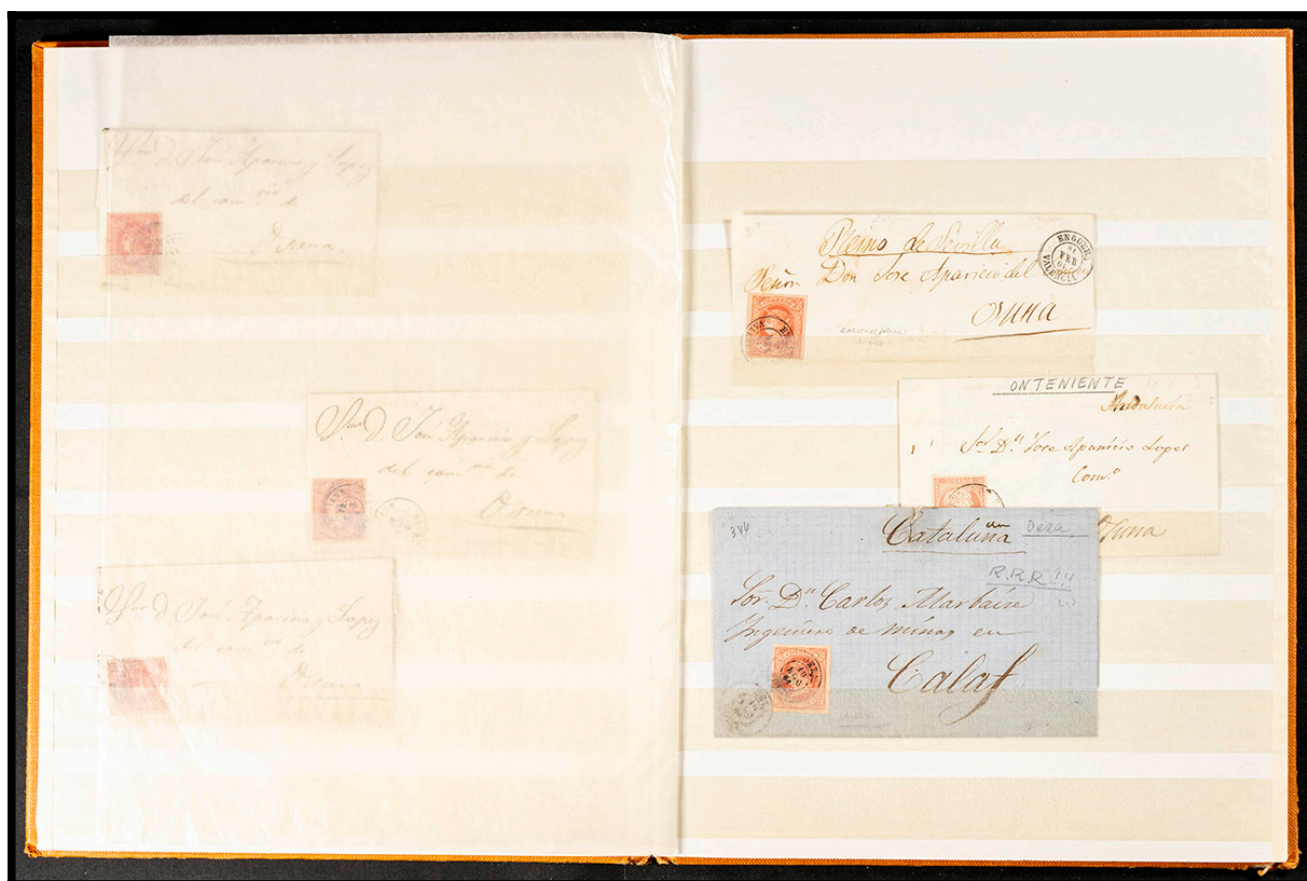 Sor D. José Aparicio y Lopez
del com.cio de
Osuna
Sor D. José Aparicio y Lopez
del com.cio de
Osuna
Sor D. José Aparicio y Lopez
del com.cio de
Osuna
Reino de Sevilla
Señor Don Jose Aparicio del
Osuna
ENGUER
FEB
VALENCIA
ONTENIENTE
Andalucía
Sor Dn Jose Aparicio Lopez
Com.o
Osuna
344
Cataluña
Deza
R.R.R!!!
Sor. Dn Carlos
Ingeniero de minas en
Calaf
10
AGO